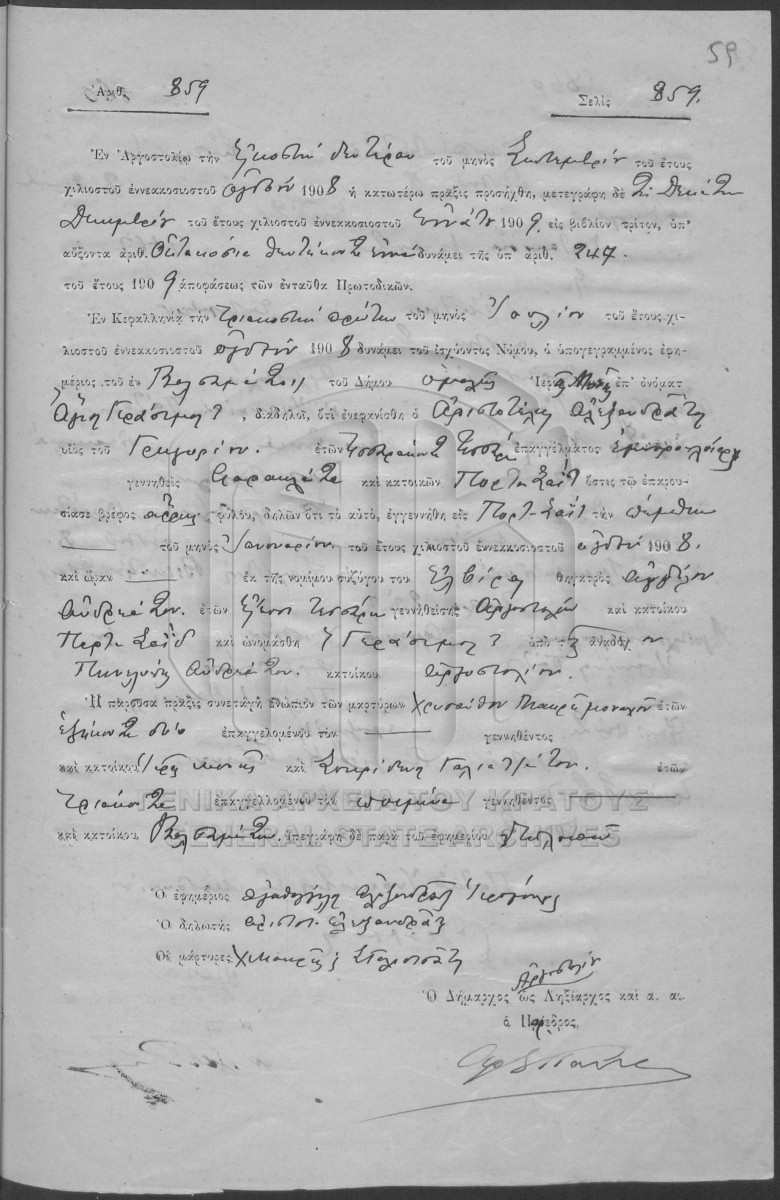 59
Ἀριθ. 859
Σελὶς 859.
Ἐν Ἀργοστολίῳ τὴν εἰκοστὴν δευτέραν τοῦ μηνὸς Σεπτεμβρίου τοῦ ἔτους
χιλιοστοῦ ἐννεακοσιοστοῦ ὀγδόου 1908 ἡ κατωτέρω πρᾶξις προσήχθη, μετεγράφη δὲ τῇ δεκάτῃ
Δεκεμβρίου τοῦ ἔτους χιλιοστοῦ ἐννεακοσιοστοῦ ἐννάτου 1909 εἰς βιβλίον τρίτον, ὑπ'
αὔξοντα ἀριθ. Ὀκτακόσια πεντήκοντα ἐννέα δυνάμει τῆς ὑπ' ἀριθ. 247.
τοῦ ἔτους 1909 ἀποφάσεως τῶν ἐνταῦθα Πρωτοδικῶν.
Ἐν Κεφαλληνίᾳ τὴν τριακοστὴν πρώτην τοῦ μηνὸς Ἰουλίου τοῦ ἔτους χι-
λιοστοῦ ἐννεακοσιοστοῦ ὀγδόου 1908 δυνάμει τοῦ ἰσχύοντος Νόμου, ὁ ὑπογεγραμμένος ἐφη-
μέριος τοῦ ἐν Βαλσαμάτοις τοῦ Δήμου Ὁμαλῶν Ἱερᾶς Μονῆς ἐπ' ὀνόματι
Ἁγίου Γερασίμου, διαδηλοῖ, ὅτι ἐνεφανίσθη ὁ Ἀριστοτέλης Ἀλεξανδράτος
υἱὸς τοῦ Γρηγορίου ἐτῶν τεσσαράκοντα τεσσάρων ἐπαγγέλματος
γεννηθεὶς Φαρακλάτα καὶ κατοικῶν Πορτ-Σαΐτ ὅστις τῷ ἐπαρου-
σίασε βρέφος ἄρρεν φύλου, δηλῶν ὅτι τὸ αὐτό, ἐγεννήθη εἰς Πορτ-Σαΐτ τὴν πέμπτην
τοῦ μηνὸς Ἰανουαρίου τοῦ ἔτους χιλιοστοῦ ἐννεακοσιοστοῦ ὀγδόου 1908.
καὶ ὥραν — ἐκ τῆς νομίμου συζύγου του Ἐλβίρας θηγατρὸς Ἀγγέλου
Ἀνδρεάτου ἐτῶν εἴκοσι τεσσάρων γεννηθείσης Ἀργοστόλιον καὶ κατοίκου
Πορτ Σαΐδ καὶ ὠνομάσθη Γεράσιμος ὑπὸ τῆς ἀναδόχου
Πηνελόπης Ἀνδρεάτου κατοίκου Ἀργοστολίου.
Ἡ παροῦσα πρᾶξις συνετάγη ἐνώπιον τῶν μαρτύρων Χρυσάνθου Μακρῆ μοναχοῦ ἐτῶν
ἑξήκοντα δύο ἐπαγγελομένου τὸν — γεννηθέντος
καὶ κατοίκου Ἱερᾶς Μονῆς καὶ Σπυρίδωνος Γαλιατσάτου. ἐτῶν
τριάκοντα ἐπαγγελλομένου τὸν ποιμένα γεννηθέντος
καὶ κατοίκου Βαλσαμάτων. ὑπεγράφη δὲ παρὰ τοῦ ἐφημερίου
ΓΕΝΙΚΑ ΑΡΧΕΙΑ ΤΟΥ ΚΡΑΤΟΥΣ
GENERAL STATE ARCHIVES
Ὁ ἐφημέριος Ἀγαθάγγελος Ἀλεξανδράτος
Ὁ δηλωτὴς Ἀριστοτ. Ἀλεξανδράτος
Οἱ μάρτυρες Χ Μακρῆς
Ἀργοστολίου
Ὁ Δήμαρχος ὡς Ληξίαρχος καὶ α. α.
ὁ Πάρεδρος